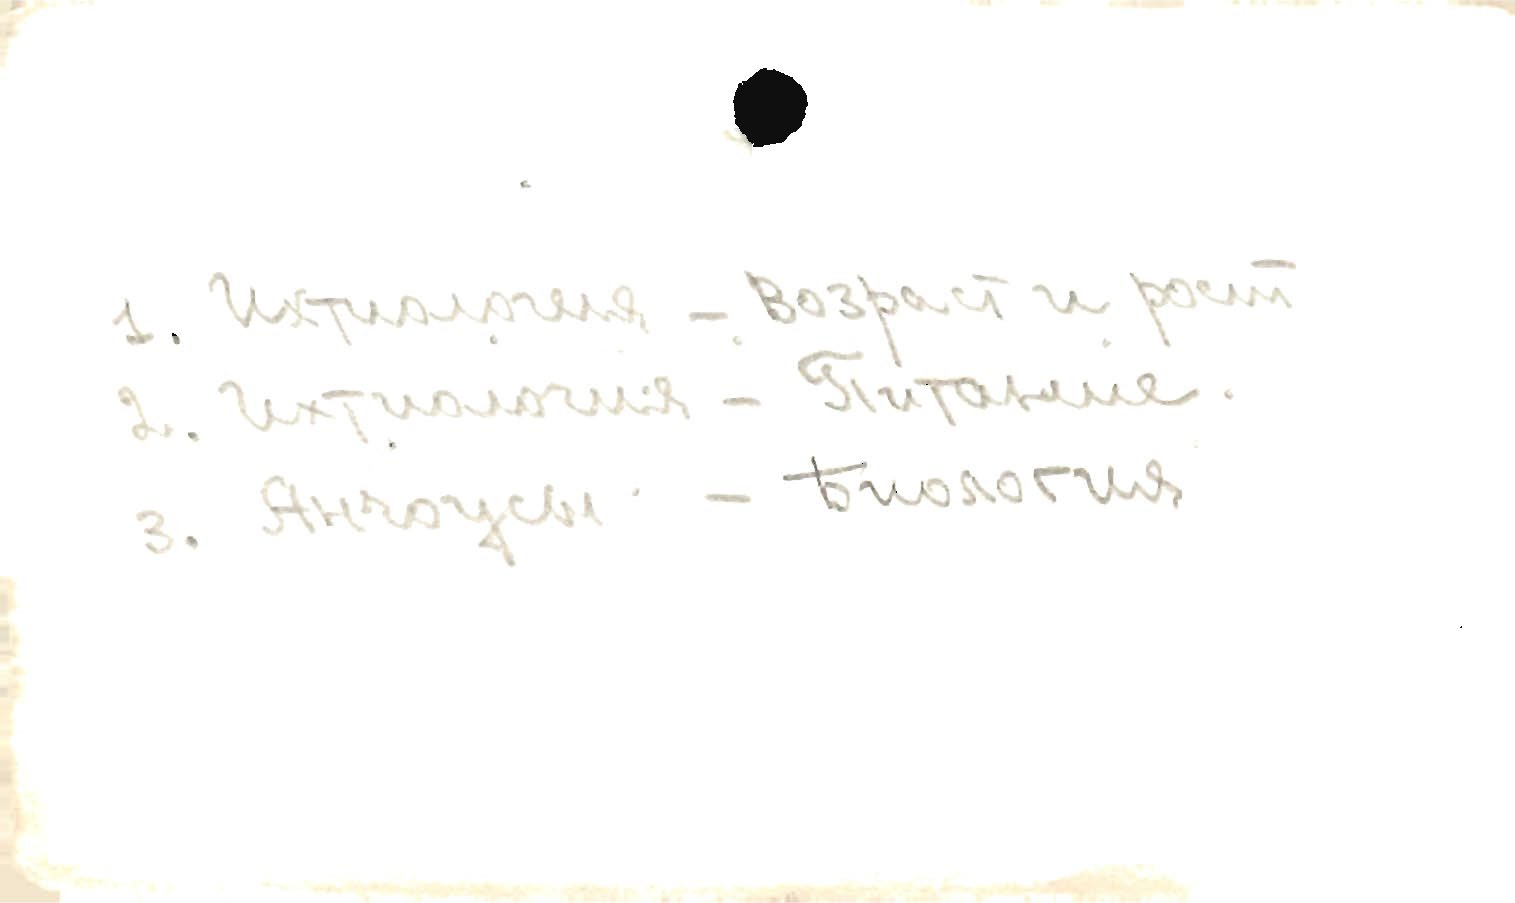 1. Ихтиология – Возраст и рост
2. Ихтиология – Питание.
3. Анчоусы – Биология